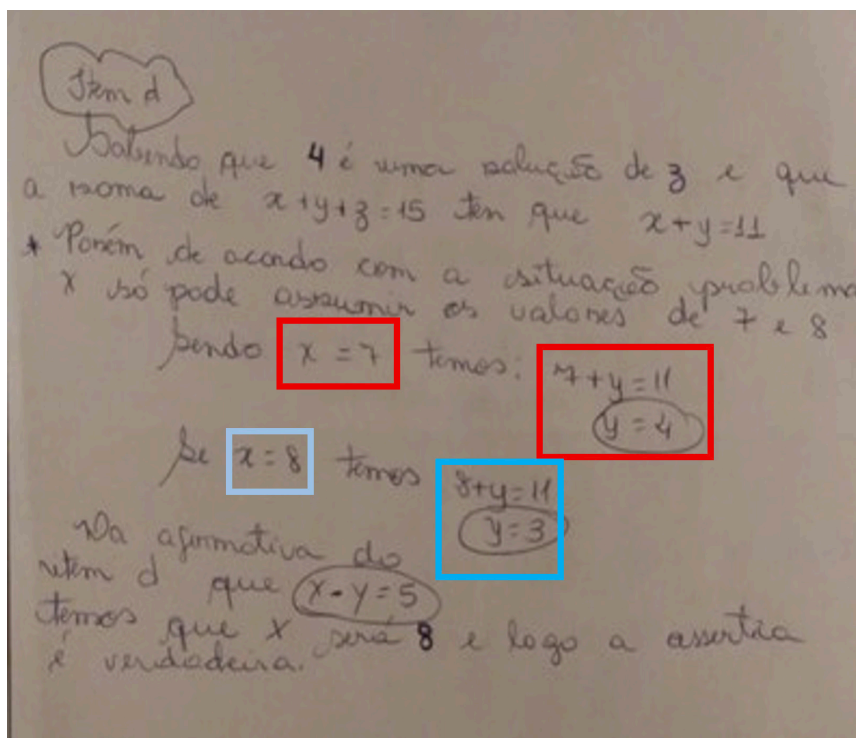 Item d
Sabendo que 4 é uma solução de z e que
a soma de x+y+z=15 tem que x+y=11
* Porém de acordo com a situação problema
x só pode assumir os valores de 7 e 8
sendo x = 7 temos: 7+y=11
y=4
se x=8 temos 8+y=11
y=3
Da afirmativa do
item d que x-y=5
temos que x será 8 e logo a assertia
é verdadeira.